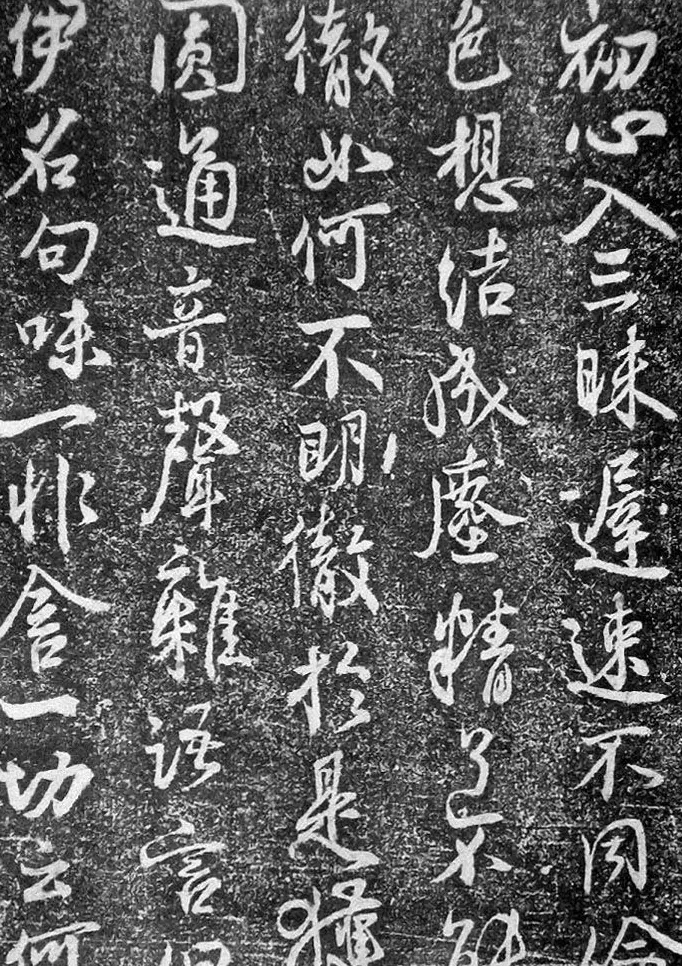 初心入三昧遲速不同倫
色想結成塵精了不能
徹如何不明徹於是獲
圓通音聲雜語言但
伊名句味一非含一切云何